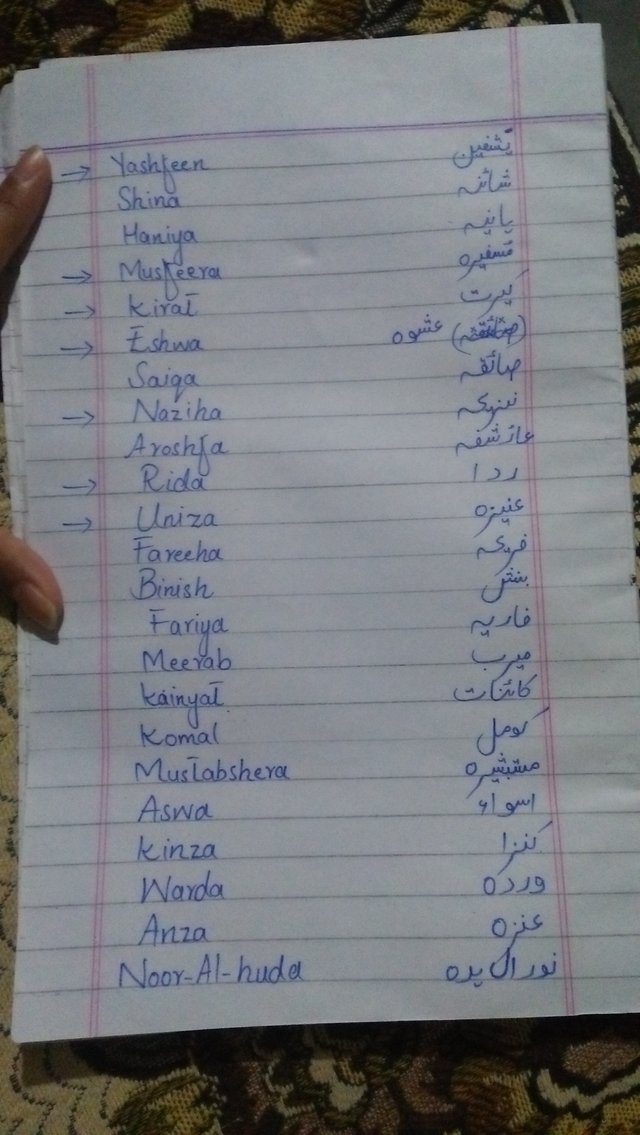 → Yashfeen یشفین
Shina شائنہ
Haniya ہانیہ
→ Musfeera مسفیرہ
→ Kirat کیرت
→ Eshwa عشوہ
Saiqa صائقہ
→ Naziha نزیحہ
Aroshfa عارشفہ
→ Rida ردا
→ Uniza عنیزہ
Fareeha فریحہ
Binish بنش
Fariya فاریہ
Meerab میرب
Kainyat کائنات
Komal کومل
Mustabshera مستبشیرہ
Aswa اسواء
Kinza کنزا
Warda وردہ
Anza عنزہ
Noor-Al-huda نور ال ہدہ